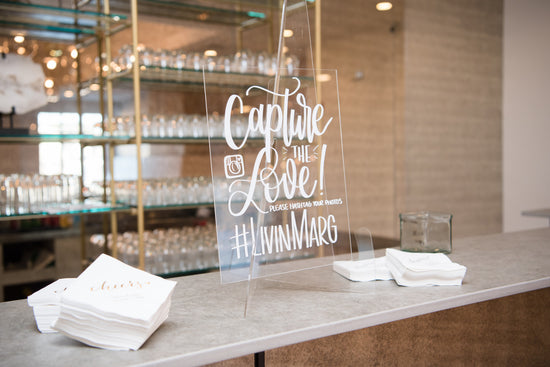 Capture
THE
Love!
PLEASE HASHTAG YOUR PHOTOS
#LIVINMARG
cheers